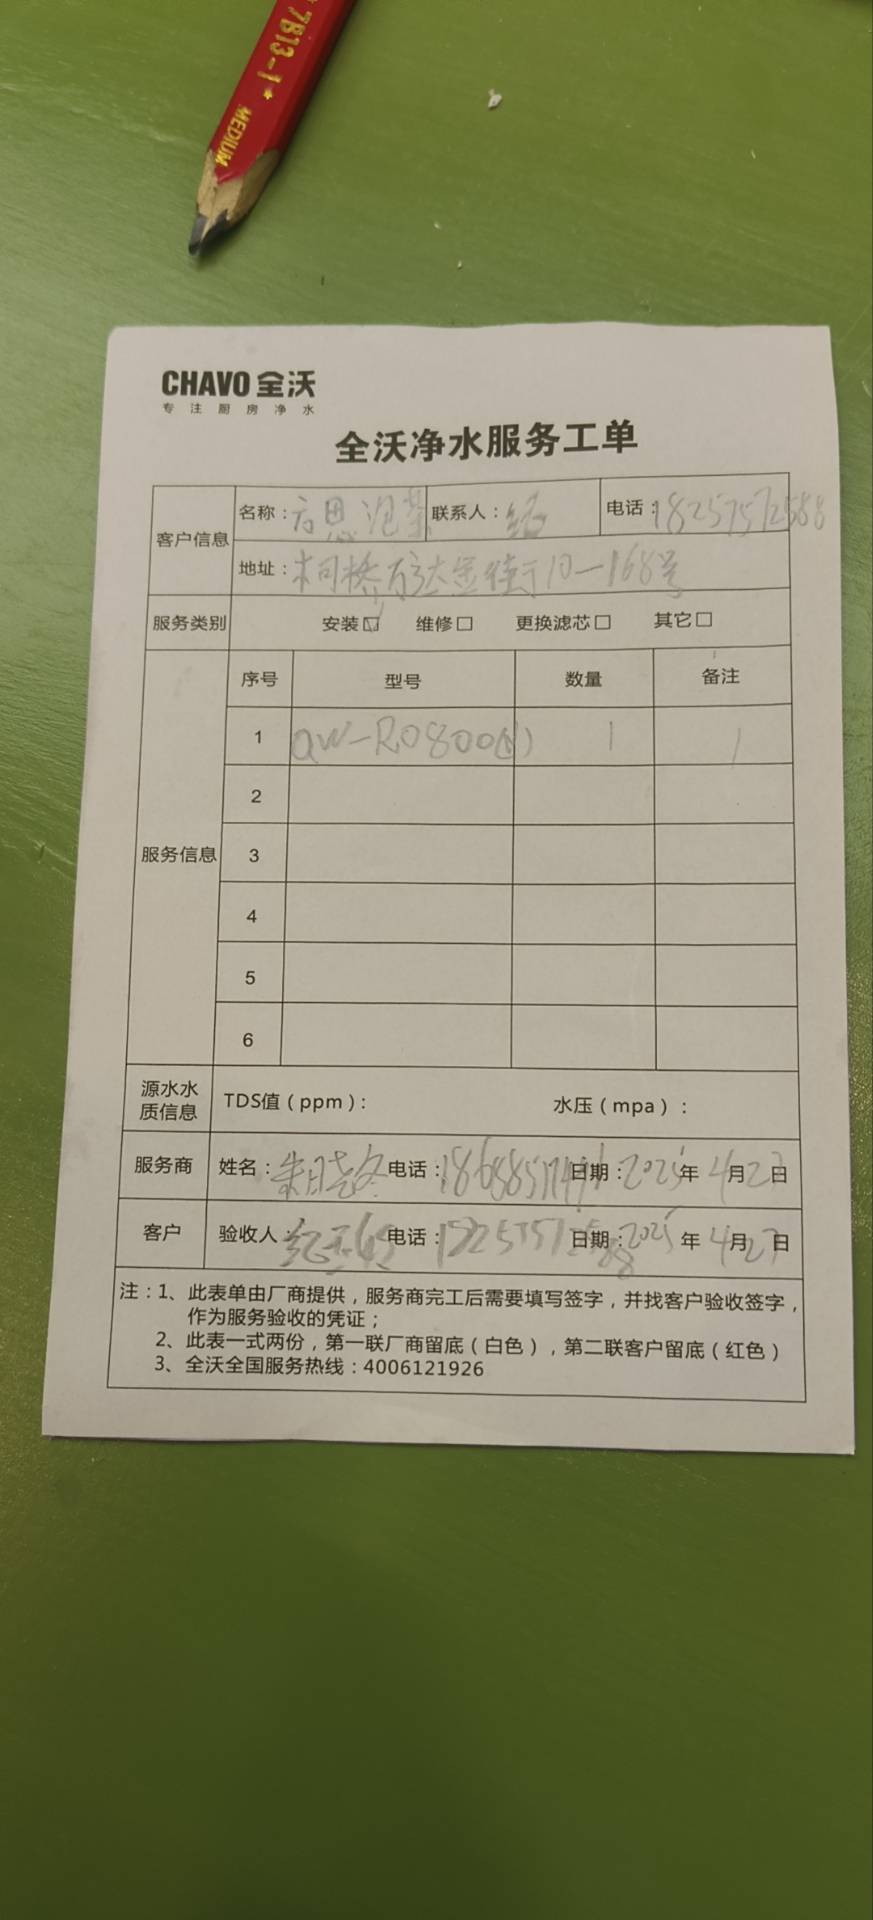 7B13-1* MEDIUM
CHAVO 全沃
专注厨房净水
全沃净水服务工单
客户信息 名称： 联系人： 电话：18257572588
地址：柯桥万达金街10-168号
服务类别 安装☑ 维修□ 更换滤芯□ 其它□
服务信息 序号 型号 数量 备注
1 QW-RO800 1
2
3
4
5
6
源水水质信息 TDS值（ppm）： 水压（mpa）：
服务商 姓名： 电话： 日期：2025年4月27日
客户 验收人： 电话： 日期：2025年4月27日
注：1、此表单由厂商提供，服务商完工后需要填写签字，并找客户验收签字，
作为服务验收的凭证；
2、此表一式两份，第一联厂商留底（白色），第二联客户留底（红色）
3、全沃全国服务热线：4006121926